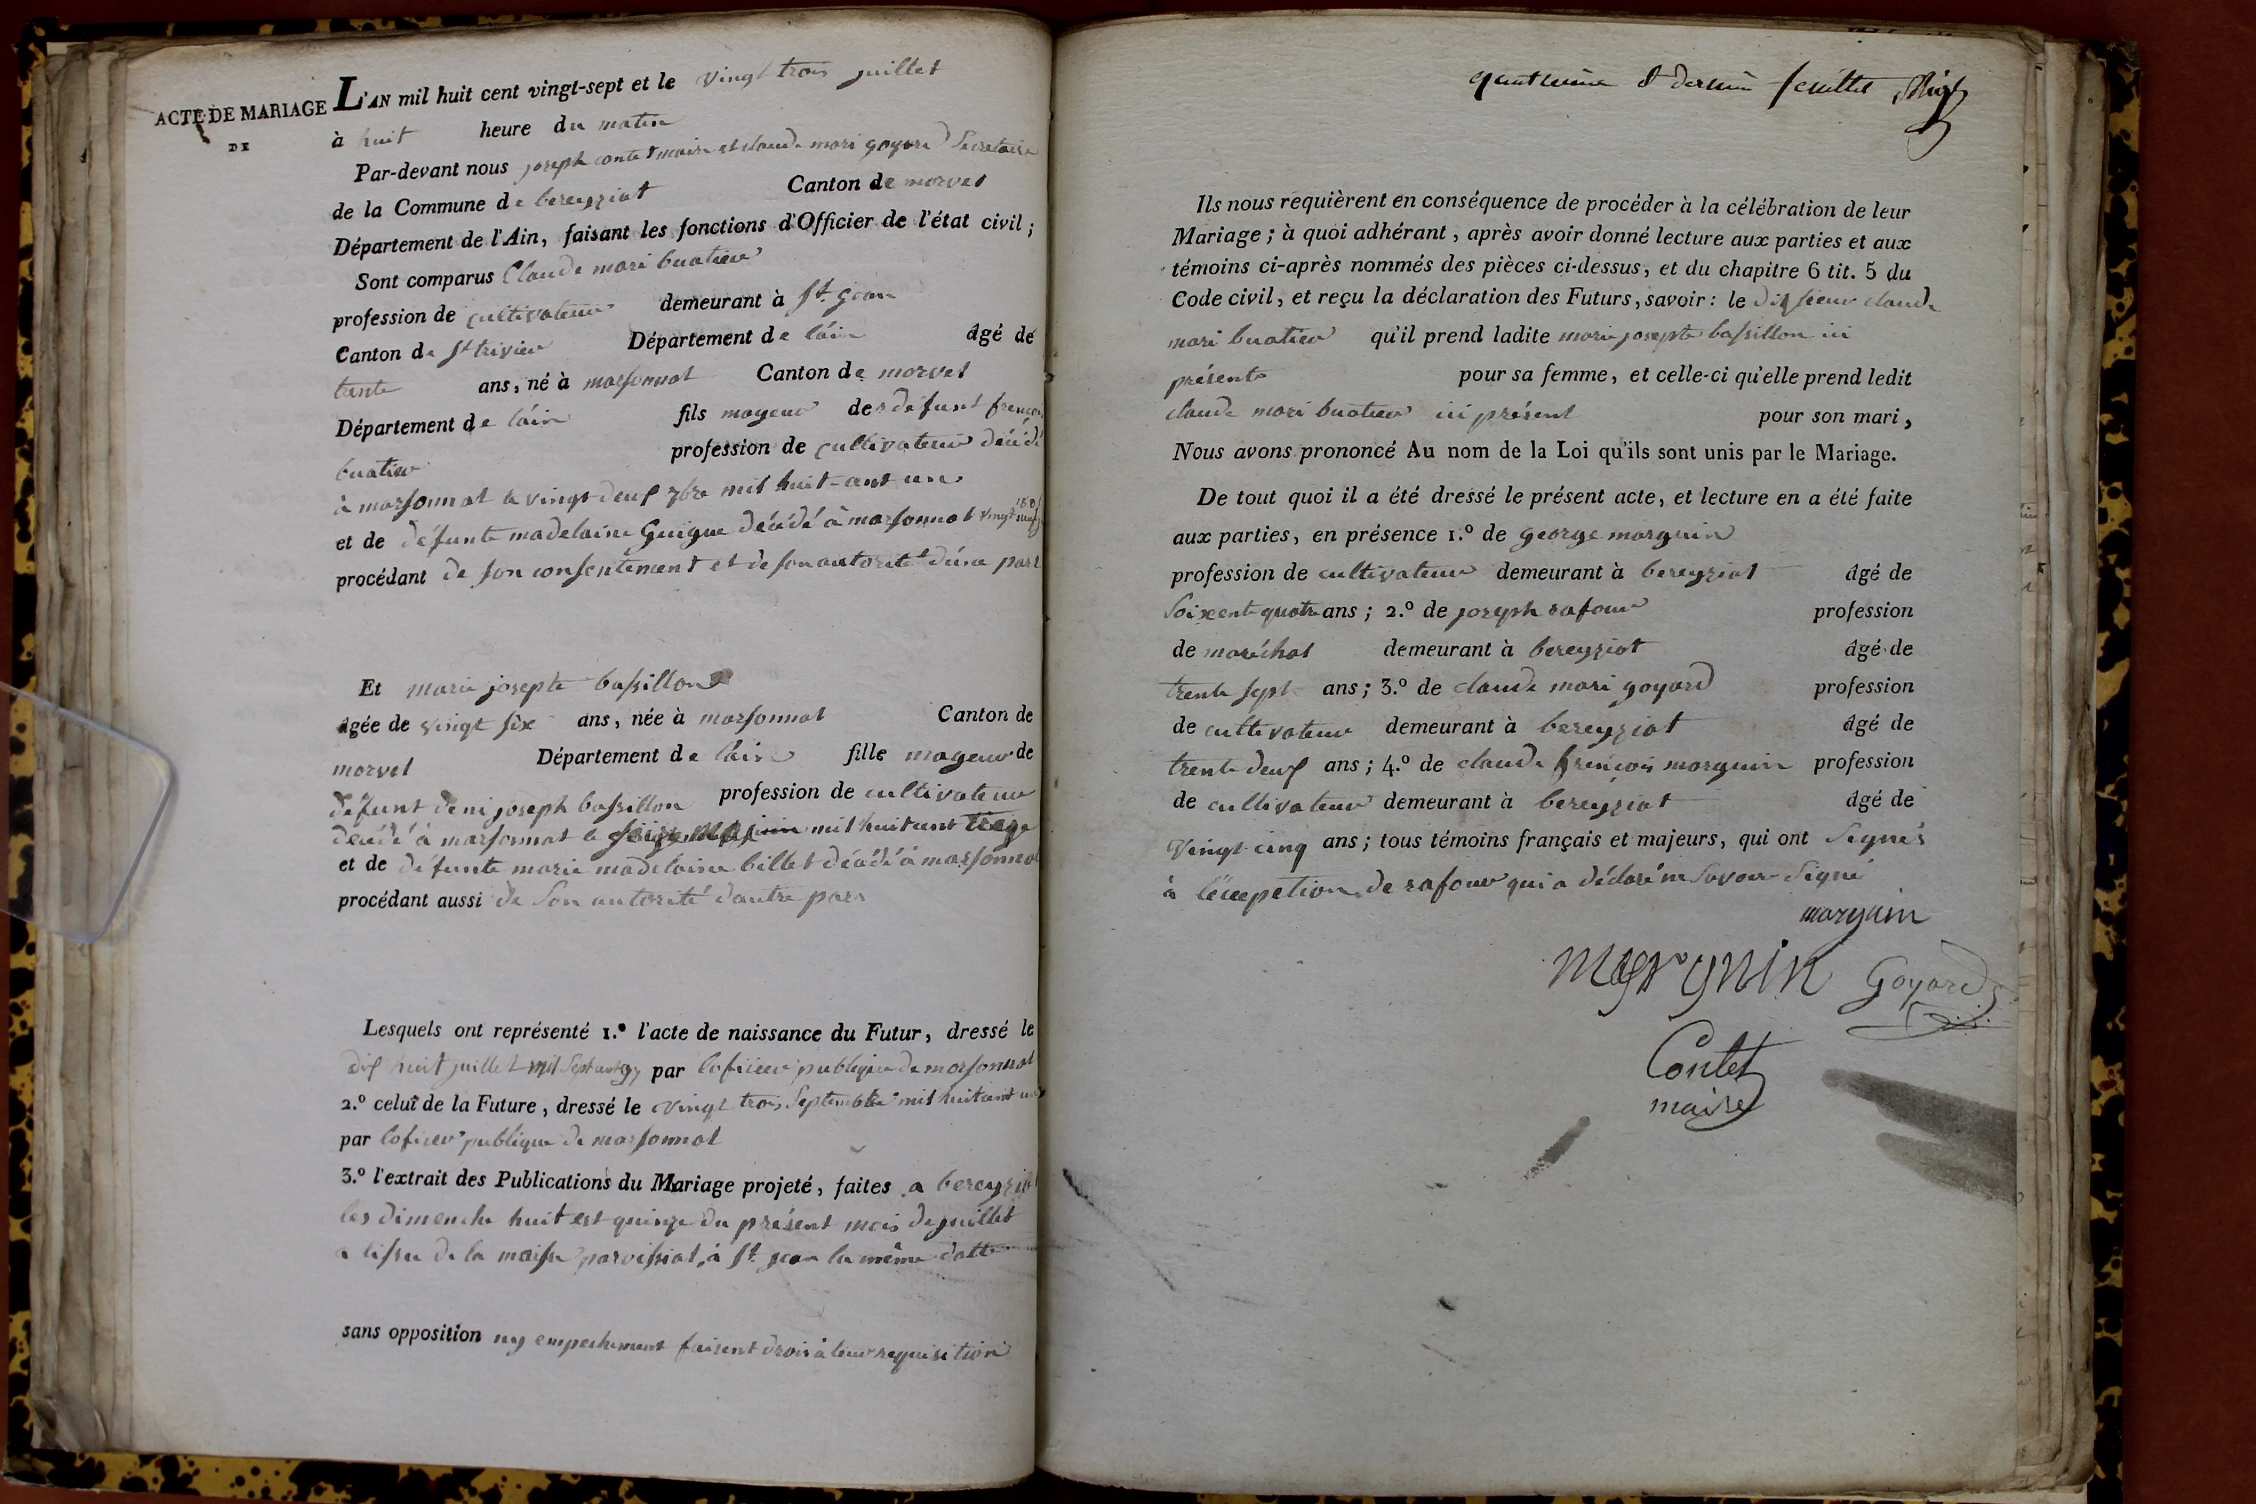 ACTE DE MARIAGE
DE
L'AN mil huit cent vingt-sept et le vingt trois juillet
à huit heure du matin
Par-devant nous joseph contet maire et claude mari goyard Secretaire
de la Commune de bereyziat Canton de morvel
Département de l'Ain, faisant les fonctions d'Officier de l'état civil ;
Sont comparus Claude mari buatier
profession de cultivateur demeurant à St. jean
Canton de St trivier Département de láin âgé de
trente ans, né à marsonnat Canton de morvel
Département de láin fils mayeur de defunt
buatier profession de cultivateur décédé
à marsonnat le vingt deux 7bre mil huit-cent un
et de défunte madelaine Guigue décédé à marsonnat vingt
procédant de son consentement et de son autorité dúne part
Et marie josepte bassillon
âgée de vingt six ans, née à marsonnat Canton de
morvel Département de láin fille mayeur de
défunt deni joseph bassillon profession de cultivateur
décédé à marsonnat le juin mil huit cent treize
et de défunte marie madelaine billet décédé à marsonnat
procédant aussi de Son autorité dautre part
Lesquels ont représenté 1.º l'acte de naissance du Futur, dressé le
dix huit juillet mil Sept cent 97 par loficier publique de marsonnat
2.º celui de la Future, dressé le vingt trois Septembre mil huit cent un
par loficier publique de marsonnat
3.º l'extrait des Publications du Mariage projeté, faites a bereyziat
les dimenche huit est quinze du présent mois de juillet
a lissue de la maisse parvissial, à St. jean la même datte
sans opposition ny empechement faisent droit à leur requisition
quatrieme & dernier feuillet
Ils nous requièrent en conséquence de procéder à la célébration de leur
Mariage ; à quoi adhérant, après avoir donné lecture aux parties et aux
témoins ci-après nommés des pièces ci-dessus, et du chapitre 6 tit. 5 du
Code civil, et reçu la déclaration des Futurs, savoir : le dit sieur claude
mari buatier qu'il prend ladite marie josepte bassillon ici
présente pour sa femme, et celle-ci qu'elle prend ledit
claude mari buatier ici présent pour son mari,
Nous avons prononcé Au nom de la Loi qu'ils sont unis par le Mariage.
De tout quoi il a été dressé le présent acte, et lecture en a été faite
aux parties, en présence 1.º de george marguin
profession de cultivateur demeurant à bereyziat âgé de
Soixent quatre ans ; 2.º de joseph rafour profession
de maréchal demeurant à bereyziat âgé de
trente sept ans ; 3.º de claude mari goyard profession
de cultivateur demeurant à bereyziat âgé de
trente deux ans ; 4.º de claude frencois marguin profession
de cultivateur demeurant à bereyziat âgé de
vingt cinq ans ; tous témoins français et majeurs, qui ont Signés
à léccepetion de rafour qui a déclaré ne Savoir Signé
marguin
marguin Goyard
Contet
maire